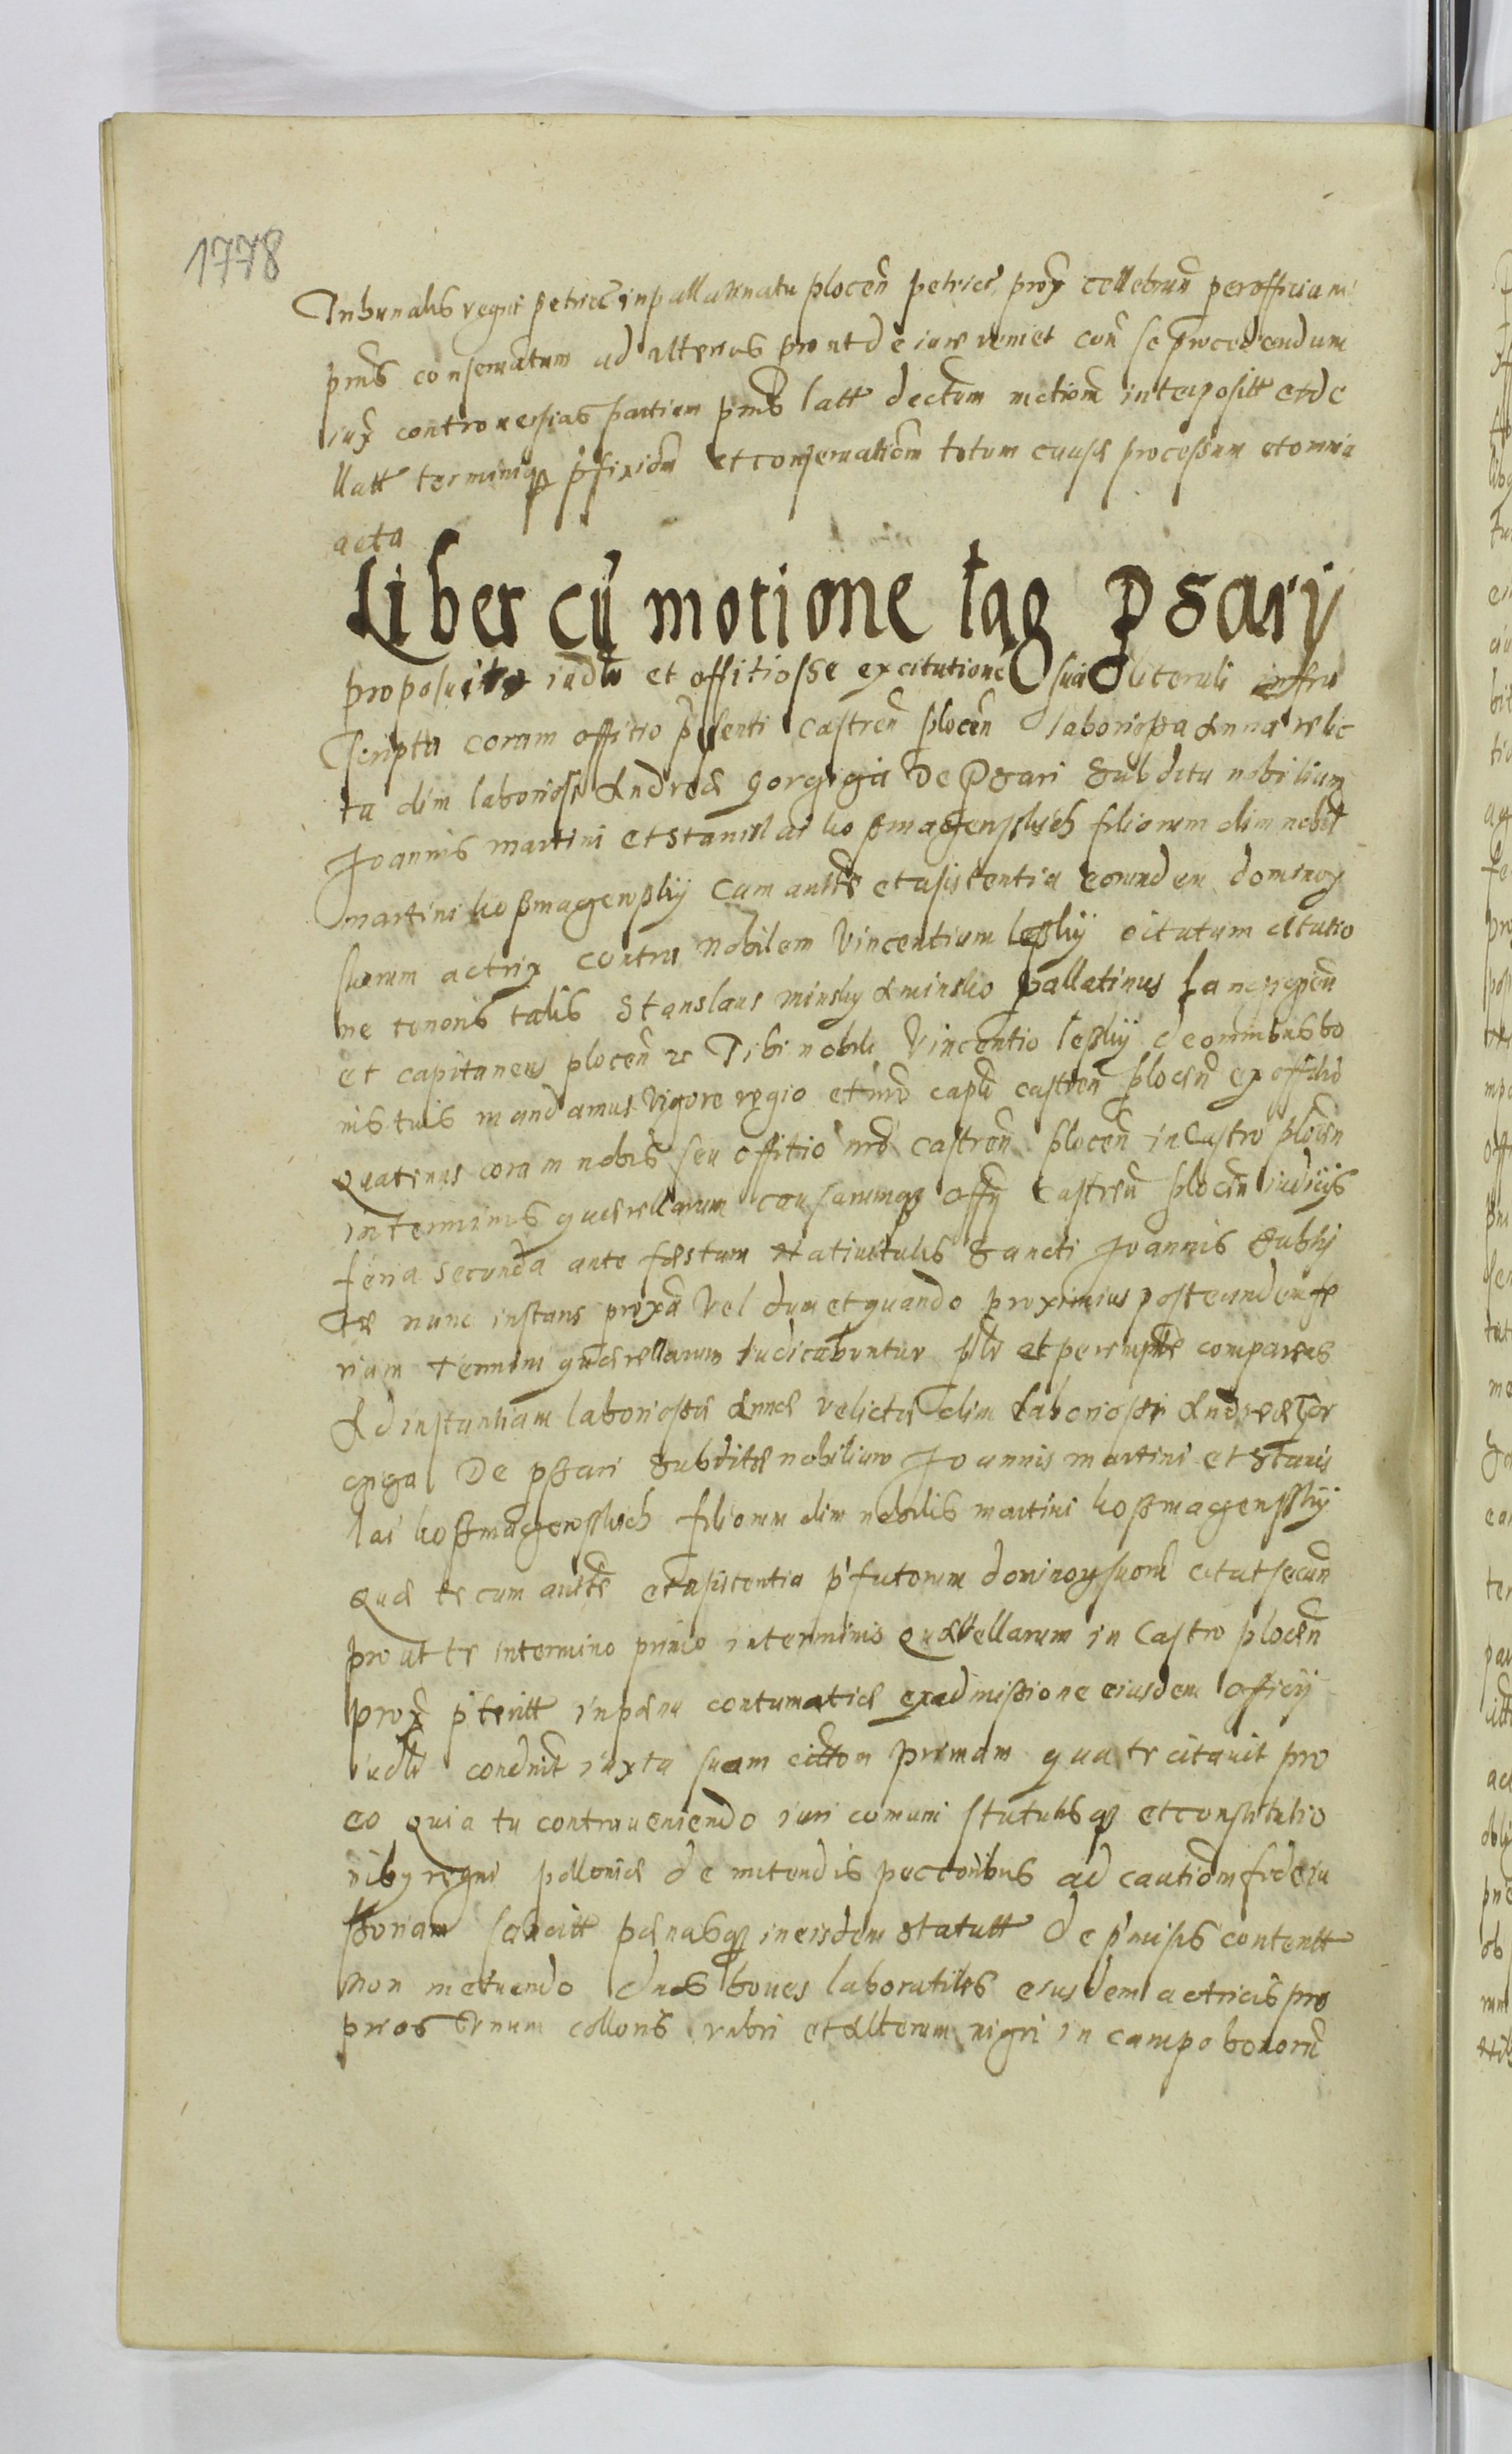 1778
Tribunalis regni petricc in pallatinatu plocen̄ petricc prox cellebran̄ per officium
pn̄s conservatum ad alterius prout de iure veniet con̄ se procedendum
iux controversias partium pn̄s latt dectum motiom̄ interpositt et de
llatt terminiq̄ p̄fixiom̄ et conservatiom̄ totum causæ processum et omnia
acta
Liber cū motione lag Psarÿ
proposuit iudtr et offitiosse excitatione sua literali infra
scripta coram offitio p̄senti castren̄ plocen̄ laboriossa Anna relic
ta olim laboriossi Andreæ Gorgiga De Psari Subdita nobilium
Joannis martini et Stanislai koßmagenskich filiorum olim nobil
martini koßmagenskÿ Cum aucte et asistentia eorundem dominox
suorum actrix contra Nobilem Vincentium leskÿ citatum citatio
ne tenoris talis Stanslaus minsky de minsko pallatinus Lancicien̄
et capitaneus plocen̄ &c Tibi nobili Vincentio leskÿ de omnibus bo
nis tuis mandamus Vigore regio et nr̄o capli castren̄ plocen̄ ex offitio
Quatenus coram nobis seu offitio nr̄o castren̄ plocen̄ in Castro plocen̄
in terminis querellarum causarumq̄ offÿ castren̄ plocen̄ iudicijs
feria secunda ante festum Nativitatis Sancti Joannis Babtis
tæ nunc instans proxa Vel dum et quando proximius post eandem fe
riam termini quærellarum iudicabuntur pltr et peremptte compareas
Ad instantiam laboriossæ Annæ relictæ olim laboriossi Andreæ Gor
gnga De psari Subditæ nobilium Joannis martini et Stanis
lai koßmagenskich filiorum olim nobilis martini koßmagenskÿ
Quæ te cum aucte et asistentia p̄fatorum dominox suorū citat secun̄
prout te in termino primo in terminis quærellarum in Castro plocen̄
prox p̄teritt in pæna contumatiæ ex admissione eiusdem officÿ
iudtr condnt iuxta suam citton primam qua te citavit pro
eo Quia tu contraveniendo iuri comuni statutisq̄ et constitutio
nibx regni polloniæ de mitendis peccoribus ad cautiom̄ fideiu
ssoriam sancitt pænasq̄ in eisdem statutt de p̄misis contentt
Non metuendo duos boves laboratiles eiusdem actricis pro
prios Vnum colloris rubri et Alterum nigri in campo bonorū